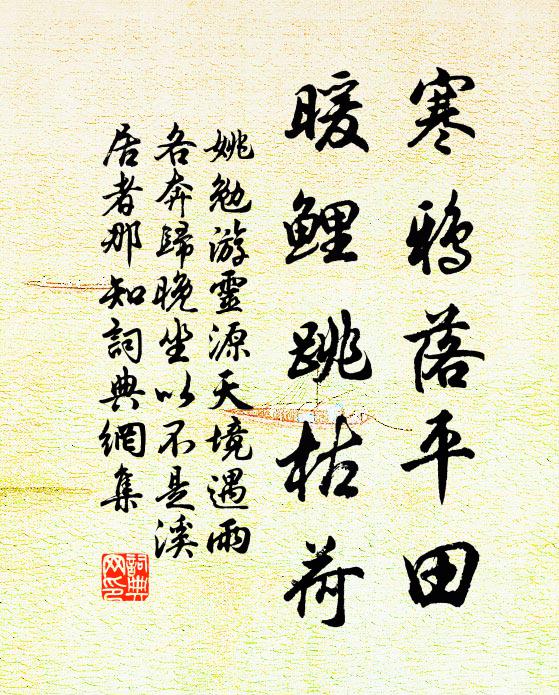 寒鸦落平田
暖鲤跳枯荷
姚勉游靈源天境遇雨
各奔歸晚坐以不是溪
居者那知詞典網集
詞典網印